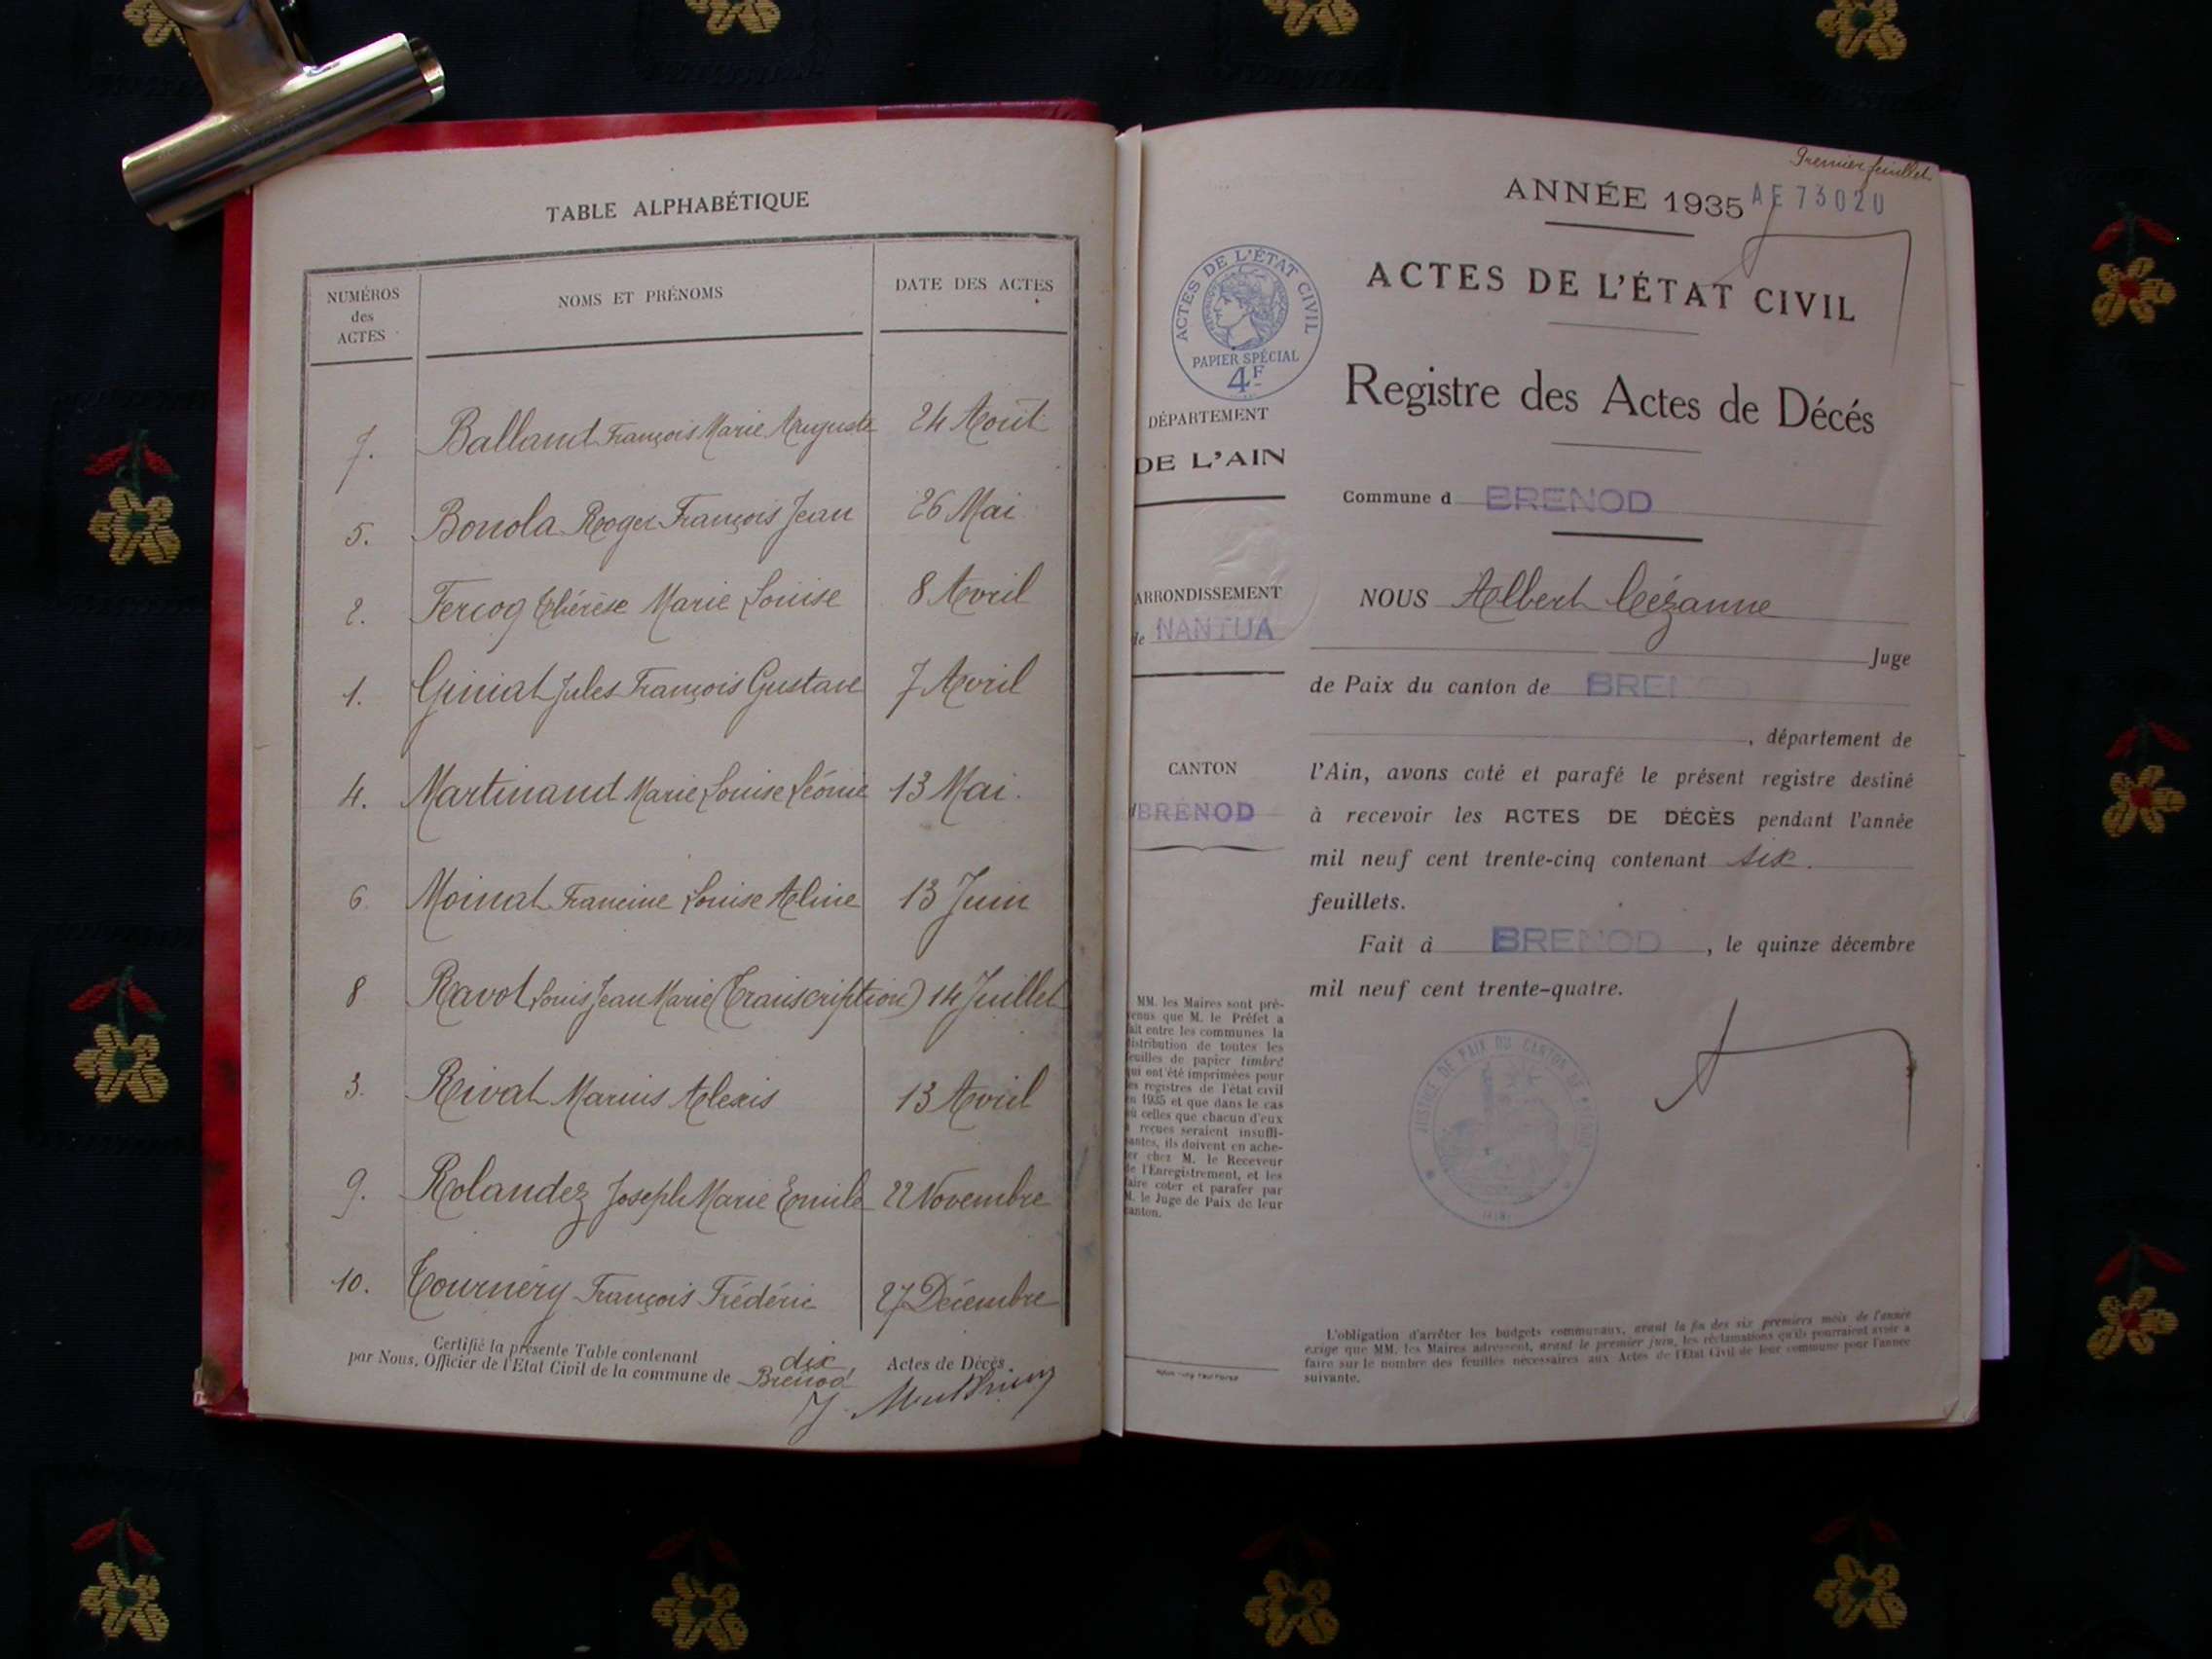 TABLE ALPHABÉTIQUE
NUMÉROS des ACTES
NOMS ET PRÉNOMS
DATE DES ACTES
7. Balland François Marie Auguste 24 Août
5. Bonola Roger François Jean 26 Mai
2. Fercoq Thérèse Marie Louise 8 Avril
1. Giniat Jules François Gustave 7 Avril
4. Martinand Marie Louise Léonie 13 Mai.
6. Moinat Francine Louise Aline 13 Juin
8 Ravot Louis Jean Marie (Transcription) 14 Juillet
3. Rivat Marius Alexis 13 Avril
9. Rolandez Joseph Marie Emile 22 Novembre
10. Tournéry François Frédéric 27 Décembre
Certifié la présente Table contenant dix Actes de Décès.
par Nous, Officier de l'Etat Civil de la commune de Brénod
Premier feuillet
ANNÉE 1935 AE 73020
ACTES DE L'ÉTAT CIVIL
Registre des Actes de Décés
Commune d BRENOD
ACTES DE L'ÉTAT CIVIL
PAPIER SPÉCIAL
4F
DÉPARTEMENT
DE L'AIN
ARRONDISSEMENT
de NANTUA
CANTON
BRÉNOD
NOUS Albert Cézanne
Juge
de Paix du canton de BRENOD
, département de
l'Ain, avons coté et parafé le présent registre destiné
à recevoir les ACTES DE DÉCÈS pendant l'année
mil neuf cent trente-cinq contenant six.
feuillets.
Fait à BRENOD, le quinze décembre
mil neuf cent trente-quatre.
JUSTICE DE PAIX DU CANTON DE
MM. les Maires sont pré-
venus que M. le Préfet a
fait entre les communes la
distribution de toutes les
feuilles de papier timbré
qui ont été imprimées pour
les registres de l'état civil
en 1935 et que dans le cas
où celles que chacun d'eux
a reçues seraient insuffi-
santes, ils doivent en ache-
ter chez M. le Receveur
de l'Enregistrement, et les
faire coter et parafer par
M. le Juge de Paix de leur
canton.
L'obligation d'arrêter les budgets communaux, avant la fin des six premiers mois de l'année
exige que MM. les Maires adressent, avant le premier juin, les réclamations qu'ils pourraient avoir à
faire sur le nombre des feuilles nécessaires aux Actes de l'Etat Civil de leur commune pour l'année
suivante.